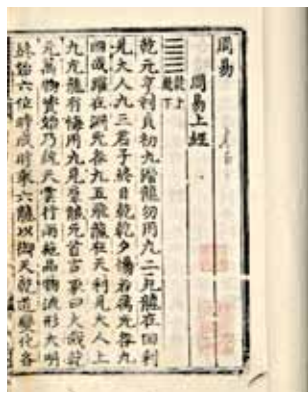 周易
周易上經
䷀ 乾上
乾下
乾元亨利貞初九潛龍勿用九二見龍在田利
見大人九三君子終日乾乾夕惕若厲无咎九
四或躍在淵无咎九五飛龍在天利見大人上
九亢龍有悔用九見羣龍无首吉彖曰大哉乾
元萬物資始乃統天雲行雨施品物流形大明
終始六位時成時乘六龍以御天乾道變化各